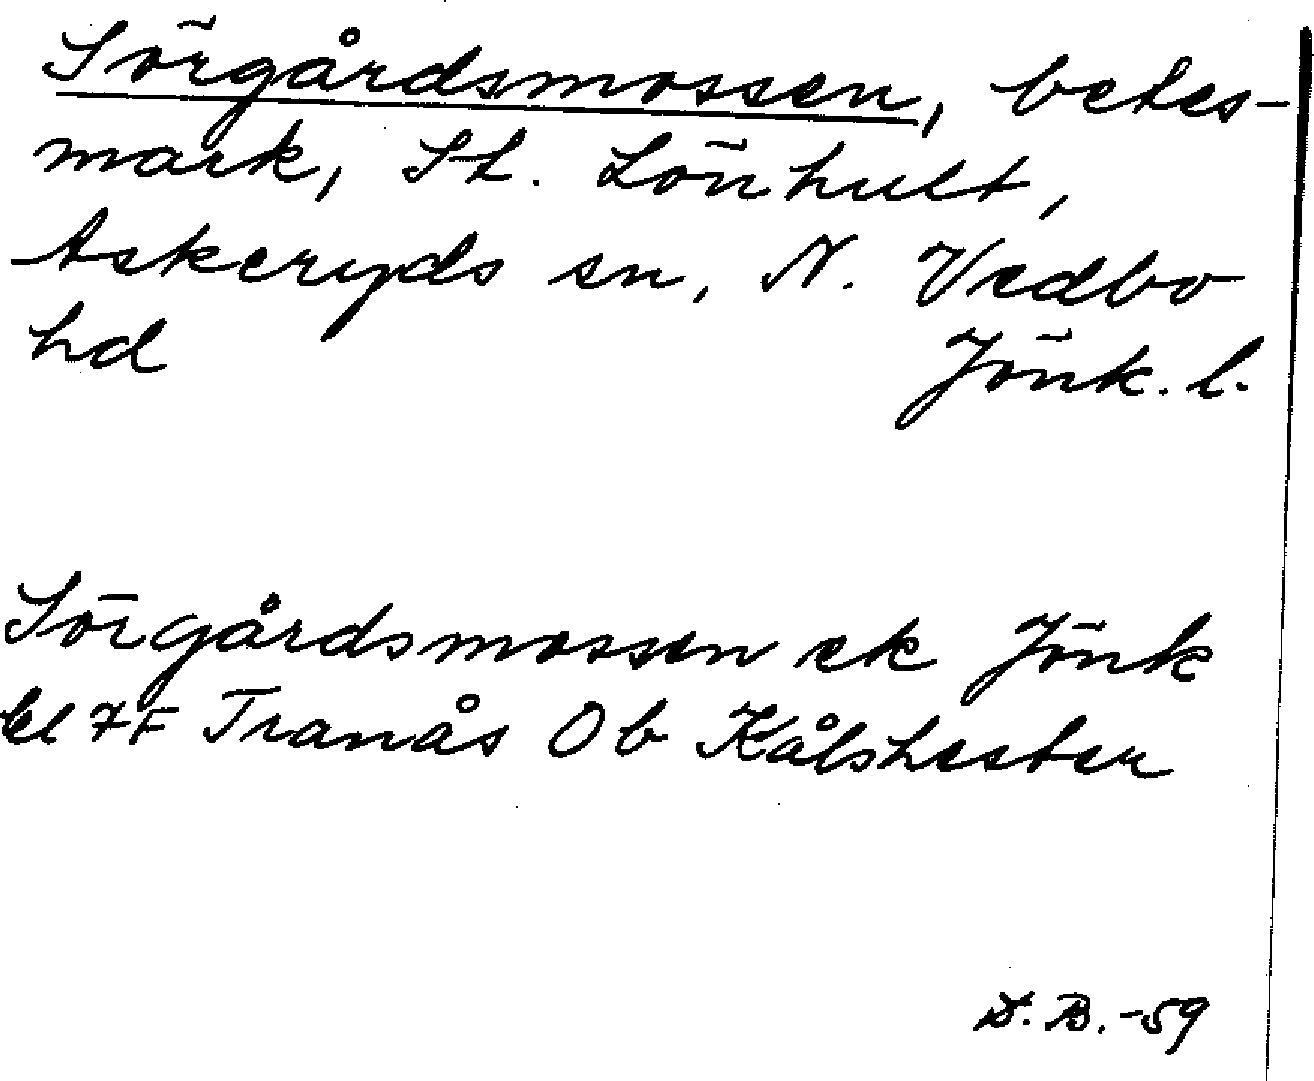 Sörgårdsmossen, betes-
mark, St. Lönhult,
Askeryds sn, N. Vedbo
hd Jönk. l.
Sörgårdsmossen ek Jönk
bl 7F Tranås Ob Kålshester
S. B. -59